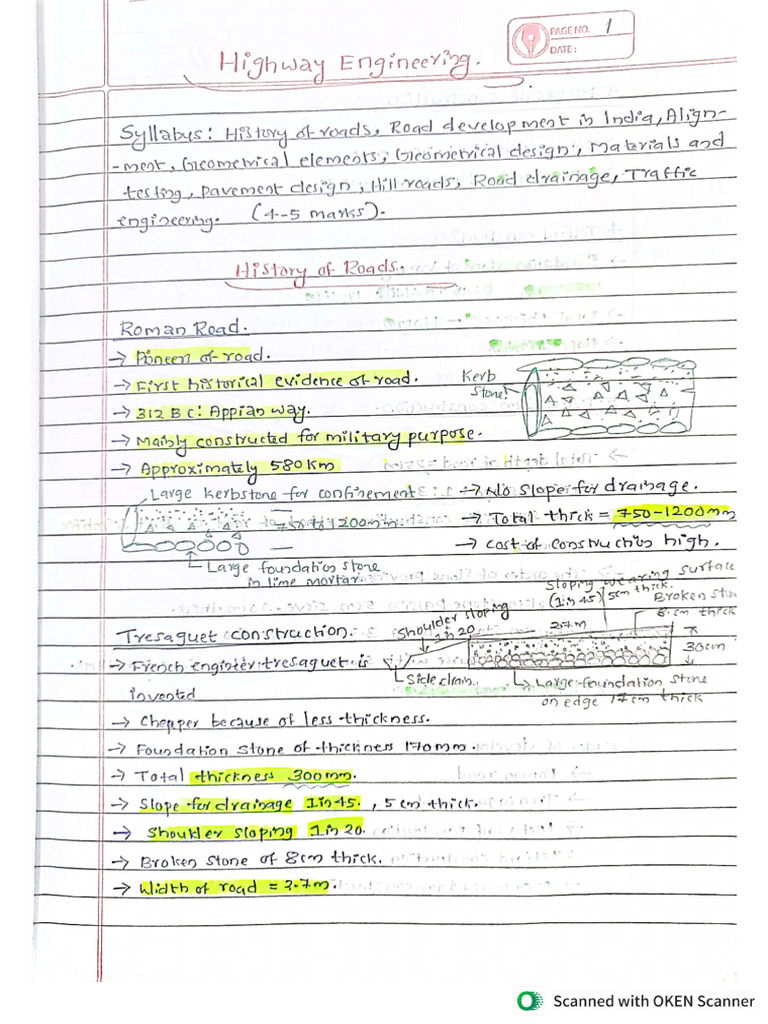 PAGE NO. 1
DATE:
Highway Engineering.
Syllabus: History of roads, Road development in India, Align-
-ment, Geometrical elements, Geometrical design, Materials and
testing, pavement design, Hill roads, Road drainage, Traffic
engineering. (4-5 marks).
History of Roads.
Roman Road.
→ Poineer of road.
→ First historical evidence of road.
Kerb
Stone
→ 312 B C: Appian way.
→ Mainly constructed for military purpose.
→ Approximately 580 Km
Large Kerbstone for confinement
→ No slope for drainage.
750 to 1200mm
→ Total thick = 750-1200mm
→ Cost of construction high.
Large foundation stone
in lime mortar
Sloping wearing surface
(1 in 45) 5cm thick.
Shoulder sloping
1 in 20
2.7m
Broken ston
8 cm thick
30cm
Tresaguet construction.
→ French engineer tresaguet is
invented
Side drain.
Large foundation stone
on edge 17cm thick
→ Chepper because of less thickness.
→ Foundation stone of thickness 170mm.
→ Total thickness 300mm.
→ Slope for drainage 1 in 45. , 5 cm thick.
→ Shoulder sloping 1 in 20.
→ Broken stone of 8cm thick.
→ Width of road = 2.7m.
Scanned with OKEN Scanner